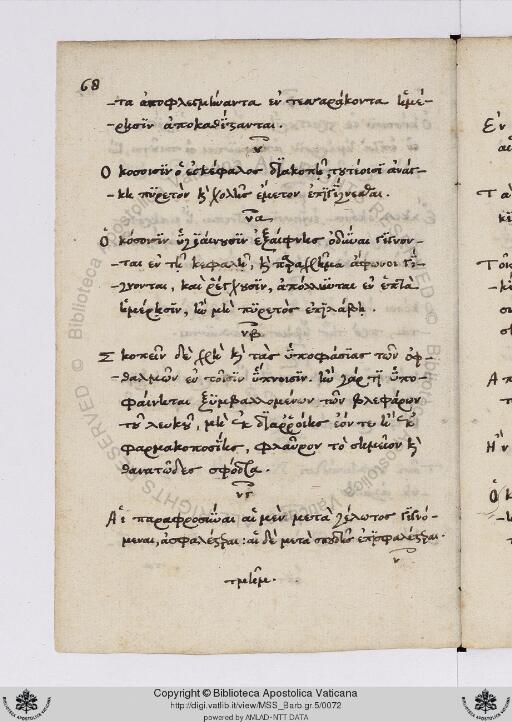 68
-τα ἀποφλεγμήναντα ἐν τεσσαράκοντα ἡμέ-
-ρῃσιν ἀποκαθίστανται.
ν
Ὁκόσοισιν ὁ ἐγκέφαλος διακοπῇ, τουτέοισι ἀνάγ-
-κη πυρετὸν καὶ χολῆς ἔμετον ἐπιγίνεσθαι.
να
Ὁκόσοισιν ὑγιαίνουσιν ἐξαίφνης ὀδύναι γίνον-
-ται ἐν τῇ κεφαλῇ, καὶ παραχρῆμα ἄφωνοι γί-
-γνονται, καὶ ῥέγχουσιν, ἀπόλλυνται ἐν ἑπτὰ
ἡμέρῃσιν, ἢν μὴ πυρετὸς ἐπιλάβῃ.
νβ
Σκοπεῖν δὲ χρὴ καὶ τὰς ὑποφάσιας τῶν ὀφ-
-θαλμῶν ἐν τοῖσιν ὕπνοισιν. ἢν γάρ τι ὑπο-
φαίνεται ξυμβαλλομένων τῶν βλεφάρων
τοῦ λευκοῦ, μὴ ἐκ διαῤῥοίης ἐόντι ἢ ἐκ
φαρμακοποσίης, φλαῦρον τὸ σημεῖον καὶ
θανατῶδες σφόδρα.
νγ
Αἱ παραφροσύναι αἱ μὲν μετὰ γέλωτος γινό-
μεναι, ἀσφαλέστεραι: αἱ δὲ μετὰ σπουδῆς ἐπισφαλέστεραι.
Copyright © Biblioteca Apostolica Vaticana
http://digi.vatlib.it/view/MSS_Barb.gr.5/0072
powered by AMLAD-NTT DATA